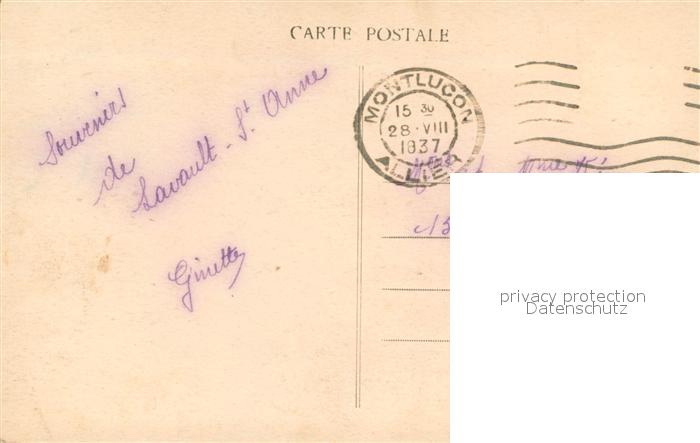 CARTE POSTALE
Souvenirs
de
Lavault - St Anne
Ginette
MONTLUCON
15 30
28 · VIII
1937
ALLIER
privacy protection
Datenschutz